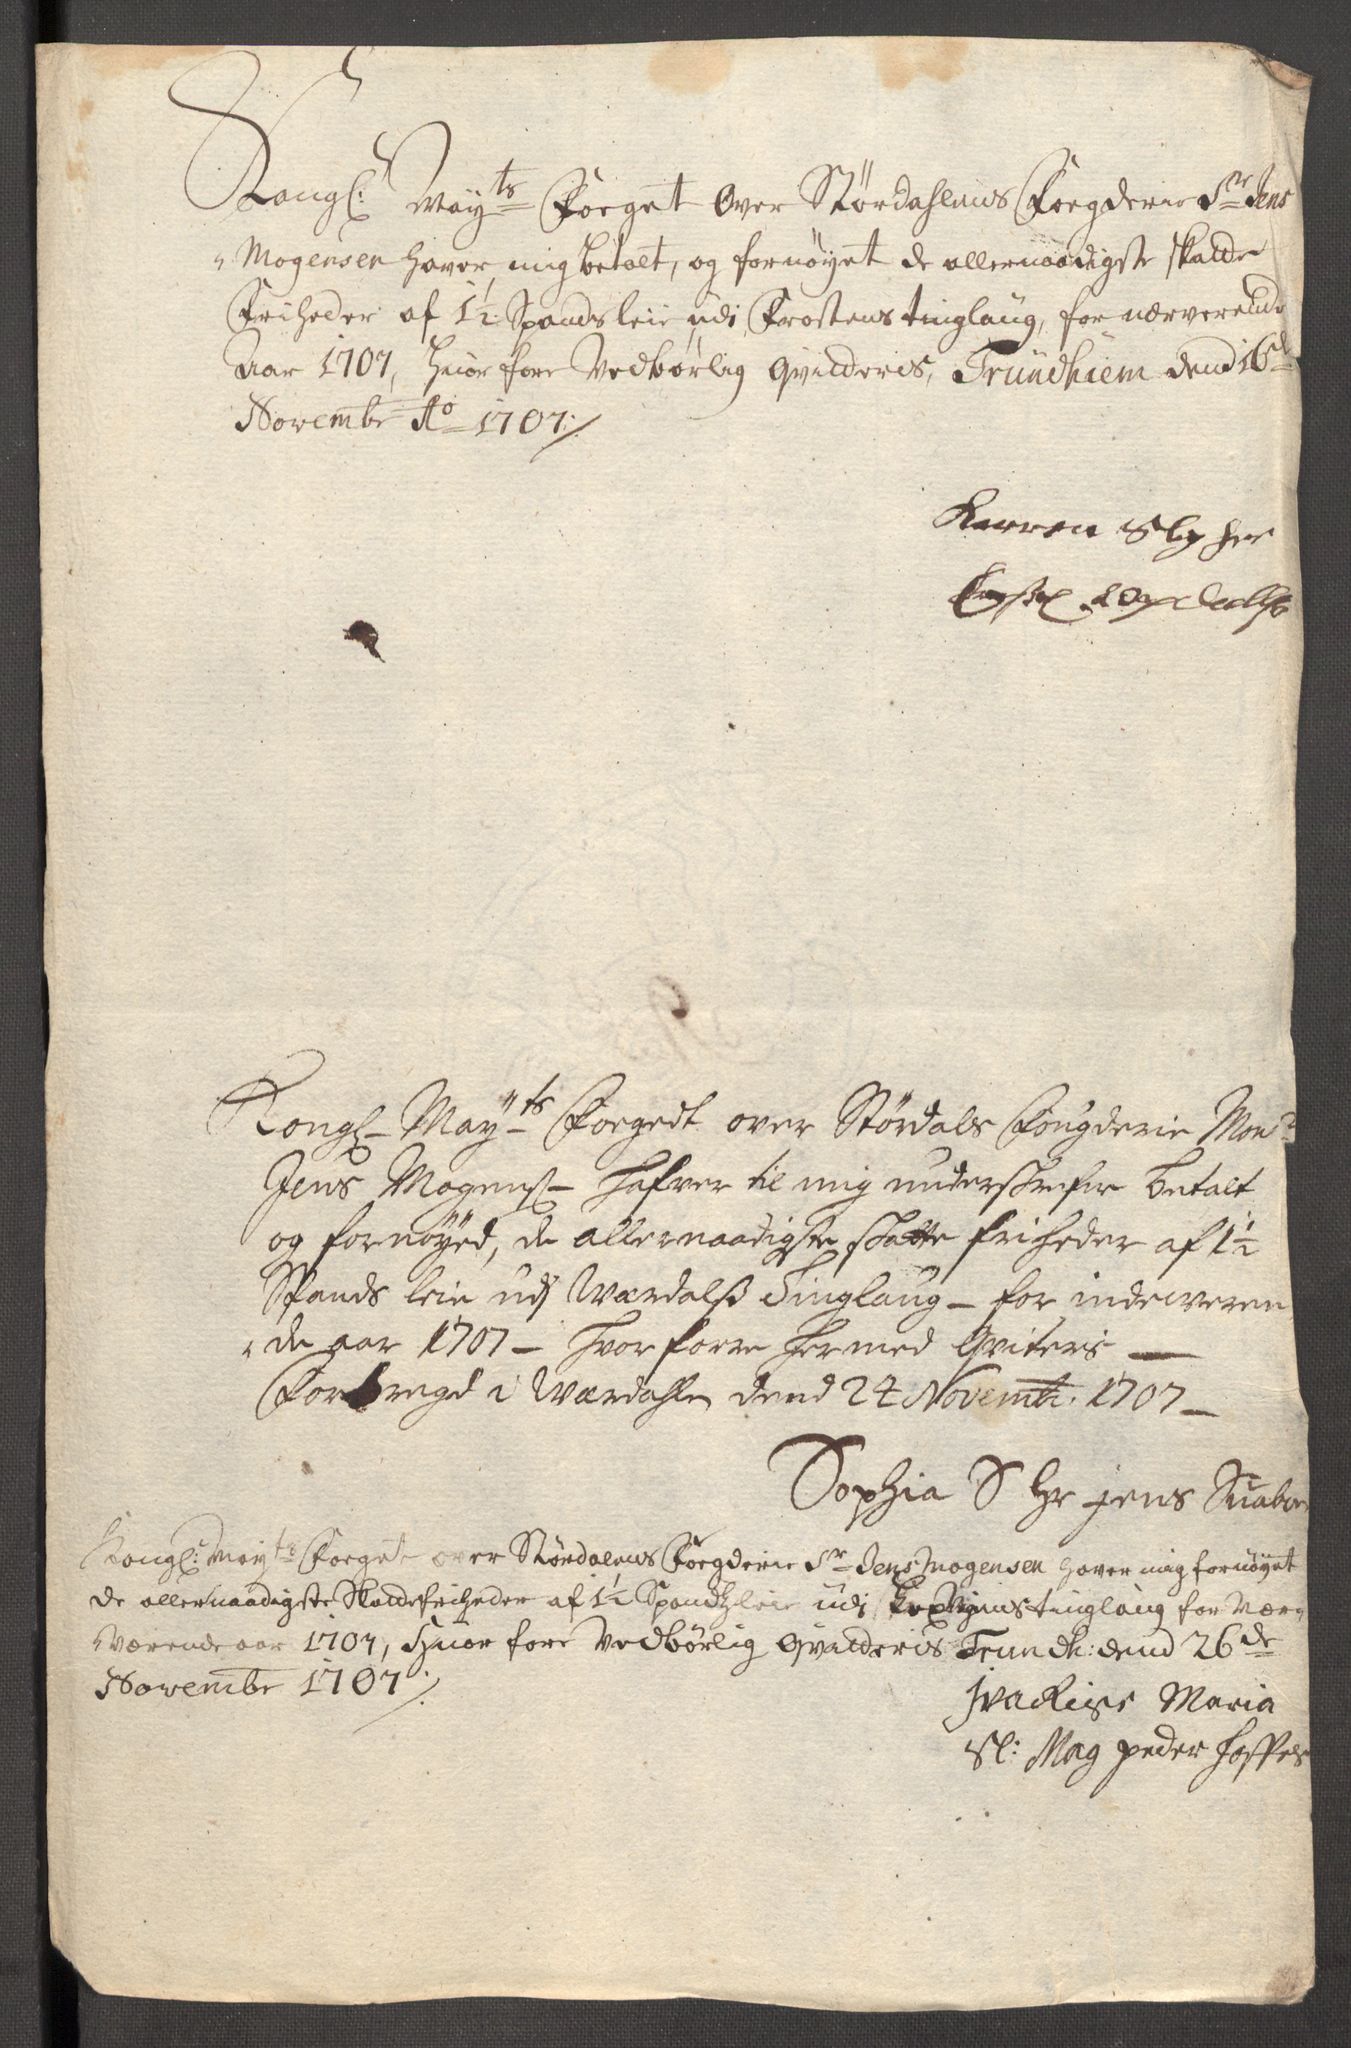 Kongl: May.ts Foeget Over Størdahlens Foegderie Sr Jens
Mogensen haver mig betalt, og fornøyet de allernaadigste skatte
Friheder af 1½ Spands leie udi Frostens tinglaug, for nærverende
Aar 1707, huor fore Vedbørlig Qvitteris, Trundhiem dend 16de
Novembr Ao 1707./.
Karren Slg her
Kongl May.ts Foegedt over Størdals Fougderie Monsr
Jens Mogens hafver til mig underskrefne betalt
og fornøyed, de allernaadigste skatte friheder af 1½
Spands leie udj Wærdalß Tinglaug - for indeweren
de aar 1707 - hvor forre hermed Qviteris -
Forbregd i Værdahlen dend 24 Novembr. 1707 -
Sophia S Hr jens Suabo
Kongl: May.ts Foeget over Størdalens Foegderie Sr Jens Mogensen haver mig fornøyet
de allernaadigste Skattefriheder af 1½ Spandsleie udi tinglaug for Nær
værende aar 1707, Huor fore Vedbørlig Qvitteris Trundh: dend 26de
Novembr 1707./.
Maria
Sl: Mag peder